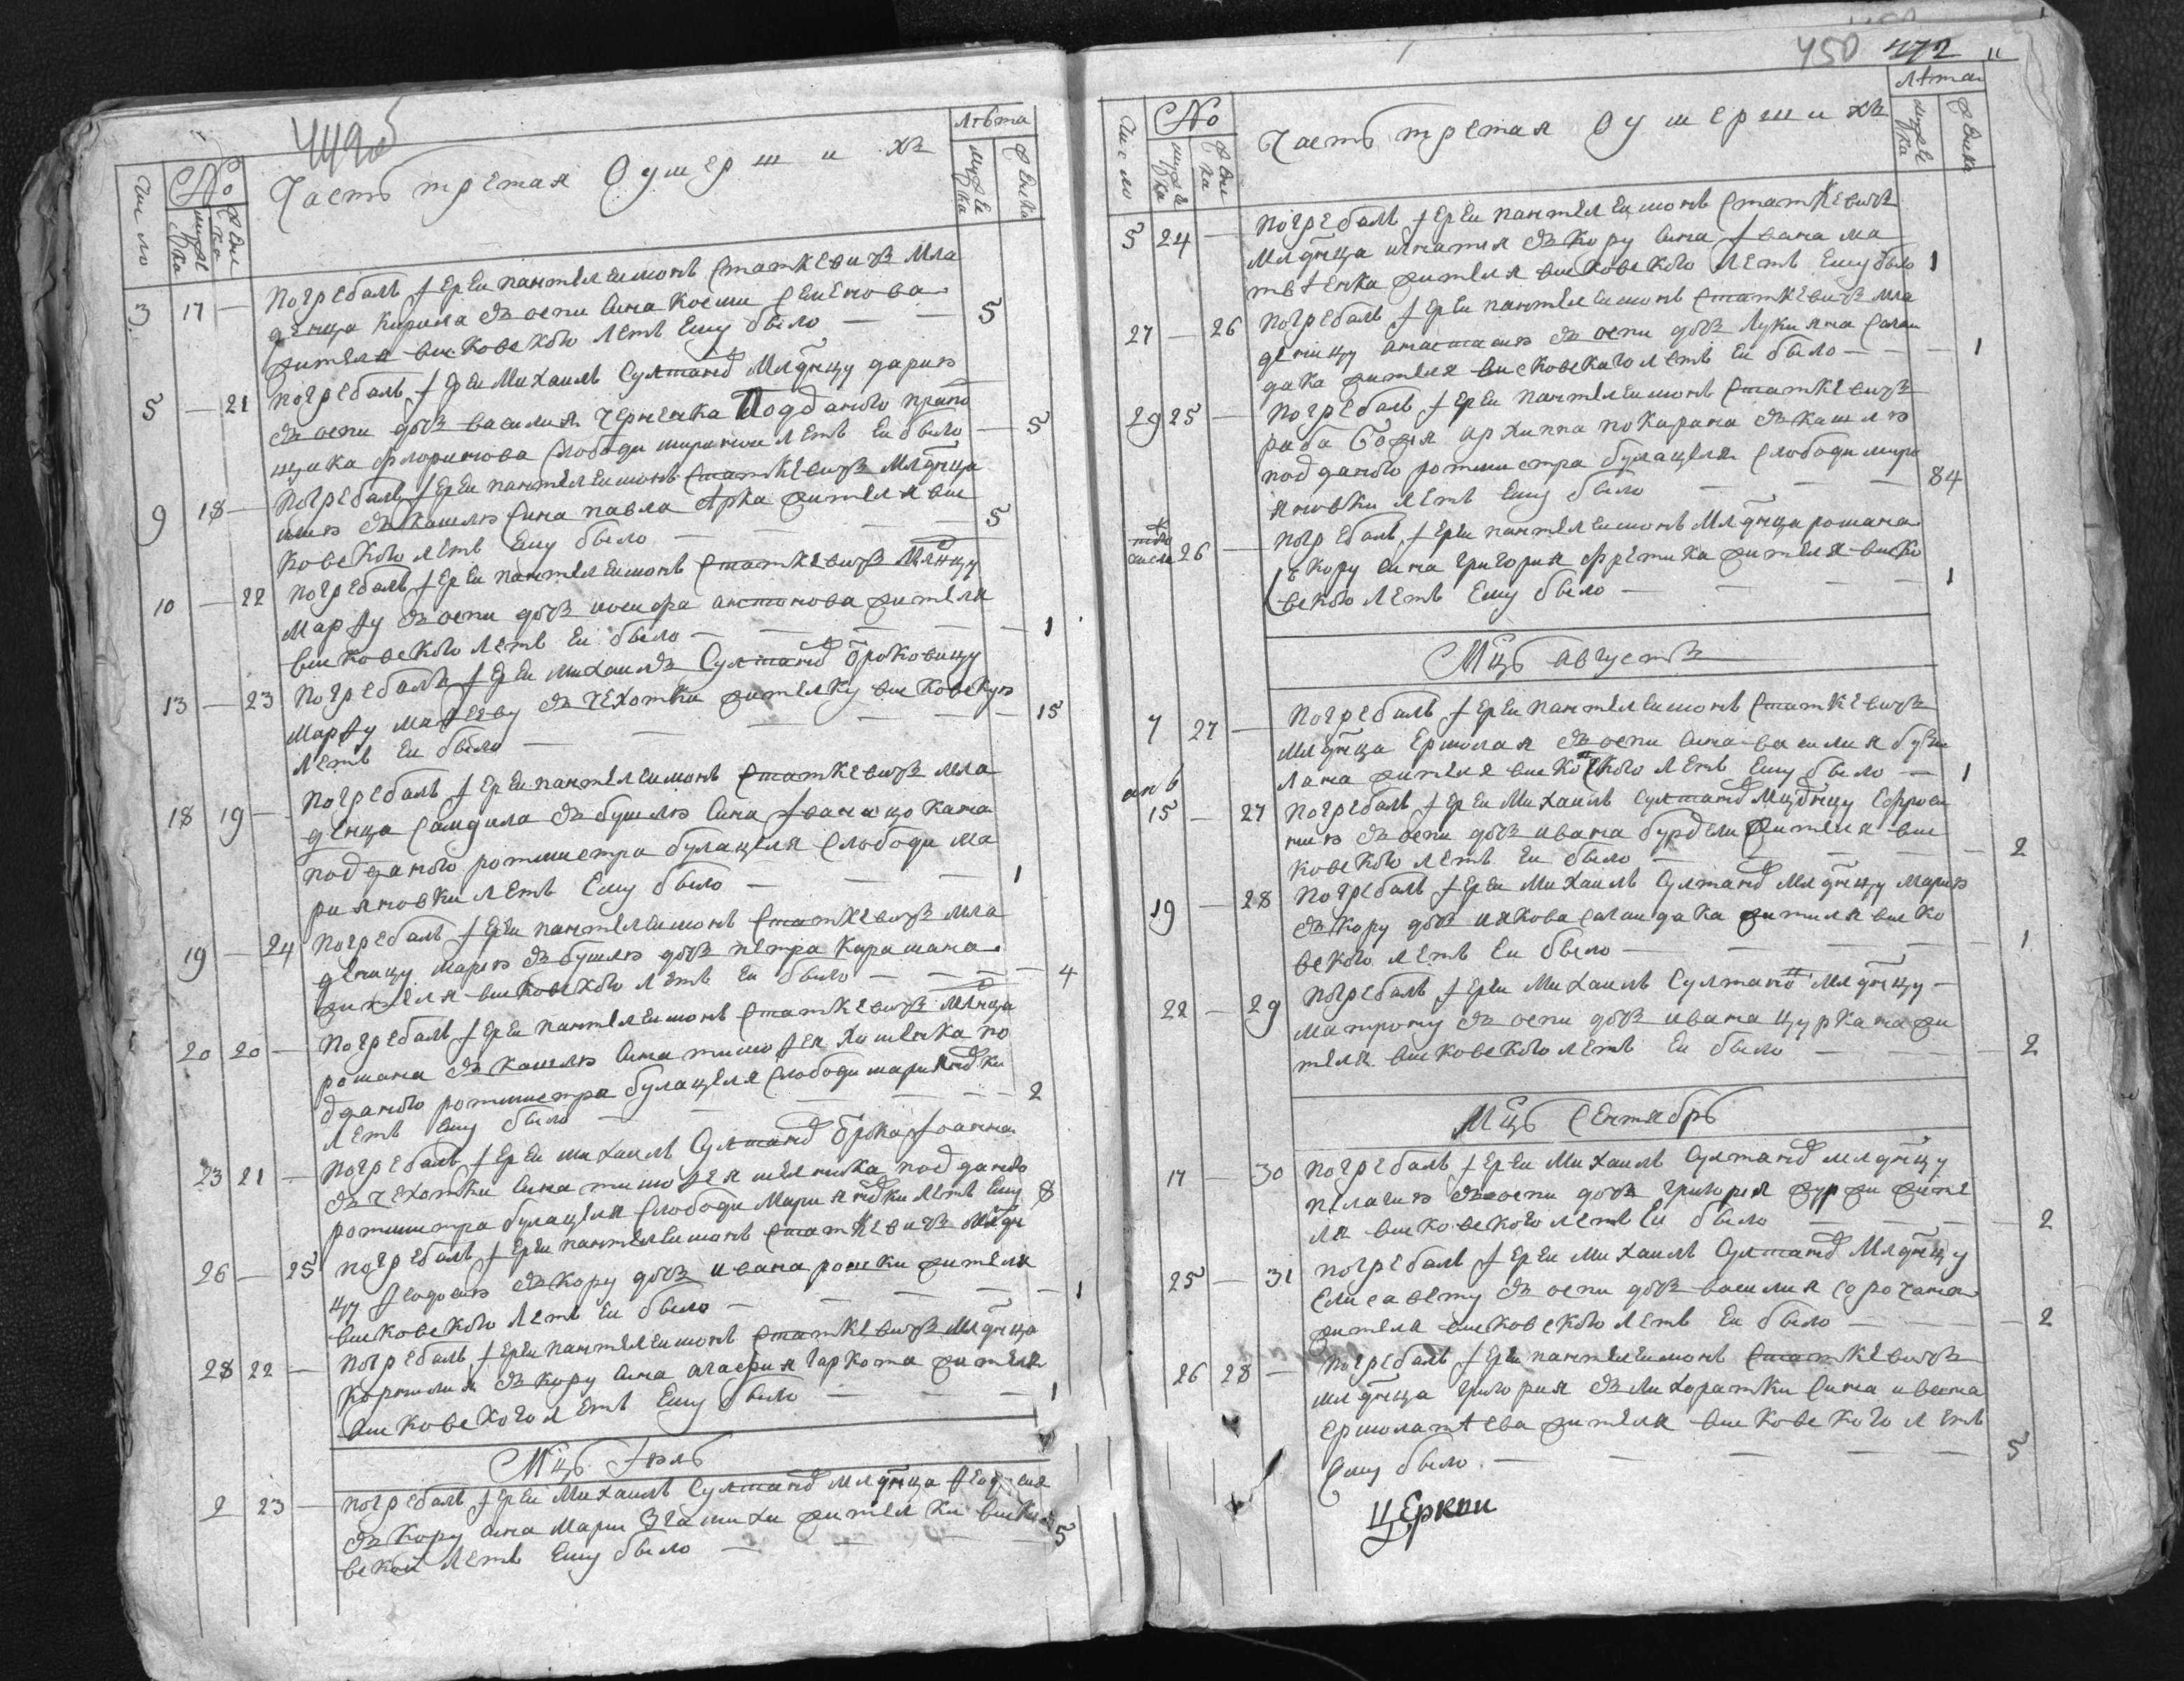 449об
Часть третая О умерших
лѣта
Число
No
мужеска
женска
мужеска
женска
3 17 — погребалъ іереи пантелеимонъ статкевичъ мла
денца кирила ѿ оспи сина косми семенова
жителя висковского летъ ему было — — 5
5 — 21 погребалъ іереи Михаилъ Султанов Млднцу дарию
ѿ оспи дочь василия черненка Подданого прапо
щика флоринова слободи летъ еи было — 5
9 18 — погребалъ іереи пантелеимонъ статкевичъ Млднца
ѿ кашлю сина павла жителя вис
ковского летъ ему было — 5
10 — 22 погребалъ іереи пантелеимонъ статкевичъ Млднцу
Марѳу ѿ оспи дочь иосифа антонова жителя
висковского летъ еи было — 1
13 — 23 погребалъ іереи михаилъ Султанов отроковицу
Марѳу маѳееву ѿ чехотки жителку висковскую
летъ еи было — — — — 15
18 19 — погребалъ іереи пантелеимонъ статкевичъ мла
денца самуила ѿ бушлю сина івана цокана
подданого ротмистра булацеля слободи ма
рияновки летъ ему было — — — 1
19 — 24 погребалъ іереи пантелеимонъ статкевичъ мла
деницу марию ѿ бушлю дочь петра карамана
жителя висковского летъ еи было — — — 4
20 20 — погребалъ іереи пантелеимонъ статкевичъ Млнца
романа ѿ кашлю сина тимоѳея хоменка по
дданого ротмистра булацеля слободи марияновки
летъ ему было — — — 2
23 21 — погребалъ іереи михаилъ Султанов отрока іоанна
ѿ чехотки сина тимоѳея мелника подданого
ротмистра булацеля слободи Марияновки летъ ему 8
26 — 25 погребалъ іереи пантелеимонъ статкевичъ Млдн
цу ѳеодосию ѿ кору дочь ивана рошки жителя
висковского летъ еи было — — — 1
28 22 — погребалъ іереи пантелеимонъ статкевичъ Млднца
корнилия ѿ кору сина агафия гаркота жителя
висковского летъ ему было — — — 1
Мцъ іюль
2 23 — погребалъ іереи Михаилъ Султанов млднца ѳеодосия
ѿ кору сина Марии жителки виско
вскои летъ ему было — — — 5
450 472
Часть третая О умерших
лѣта
Число
No
мужеска
женска
мужеска
женска
5 24 — погребалъ іереи пантелеимонъ статкевичъ
Млднца игнатия ѿ кору сина івана ма
твѣенка жителя висковского летъ ему было 1
27 — 26 погребалъ іереи пантелеимонъ статкевичъ мла
деницу анастасию ѿ оспи дочь Лукияна салаи
дака жителя висковскаго летъ еи было — — 1
29 25 — погребалъ іереи пантелеимонъ статкевичъ
раба божия архиппа покарана ѿ кашлю
подданого ротмистра булацеля слободи мари
яновки летъ ему было — — — 84
того
числа 26 — погребалъ іереи пантелеимонъ Млднца романа
ѿ кору сина григория жителя виско
вского летъ ему было — — — 1
Мцъ августъ
7 27 — погребалъ іереи пантелеимонъ статкевичъ
Млднца ермолая ѿ оспи сина василия
жителя висковского летъ ему было — 1
15 — 27 погребалъ іереи Михаилъ Султанов Млднцу Ефроси
нию ѿ оспи дочь ивана бурдели жителя вис
ковского летъ еи было — — — 2
19 — 28 погребалъ іереи Михаилъ Султанов Млднцу Марию
ѿ кору дочь иякова салаидака жителя виско
вского летъ еи было — — — 1
22 — 29 погребалъ іереи Михаилъ Султанов Млднцу
матрону ѿ оспи дочь ивана цуркана жи
теля висковского летъ еи было — — — 2
Мцъ Сентябрь
17 — 30 погребалъ іереи Михаилъ Султанов млднцу
пелагию ѿ оспи дочь григория журжи жите
ля висковского летъ еи было — — — 2
25 — 31 погребалъ іереи Михаилъ Султанов Млднцу
Елисавету ѿ оспи дочь василия сорочана
жителя висковского летъ еи было — — — 2
26 28 — погребалъ іереи пантелеимонъ статкевичъ
млднца григория ѿ лихоратки сина ивана
ермолатѣева жителя висковского летъ
ему было — — — 5
церкви